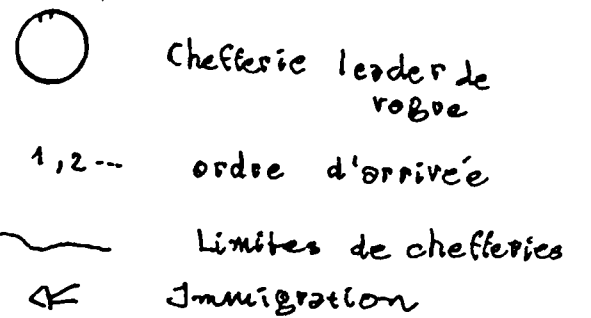 Chefferie leader de
vague
1, 2 ... ordre d'arrivée
Limites de chefferies
Immigration